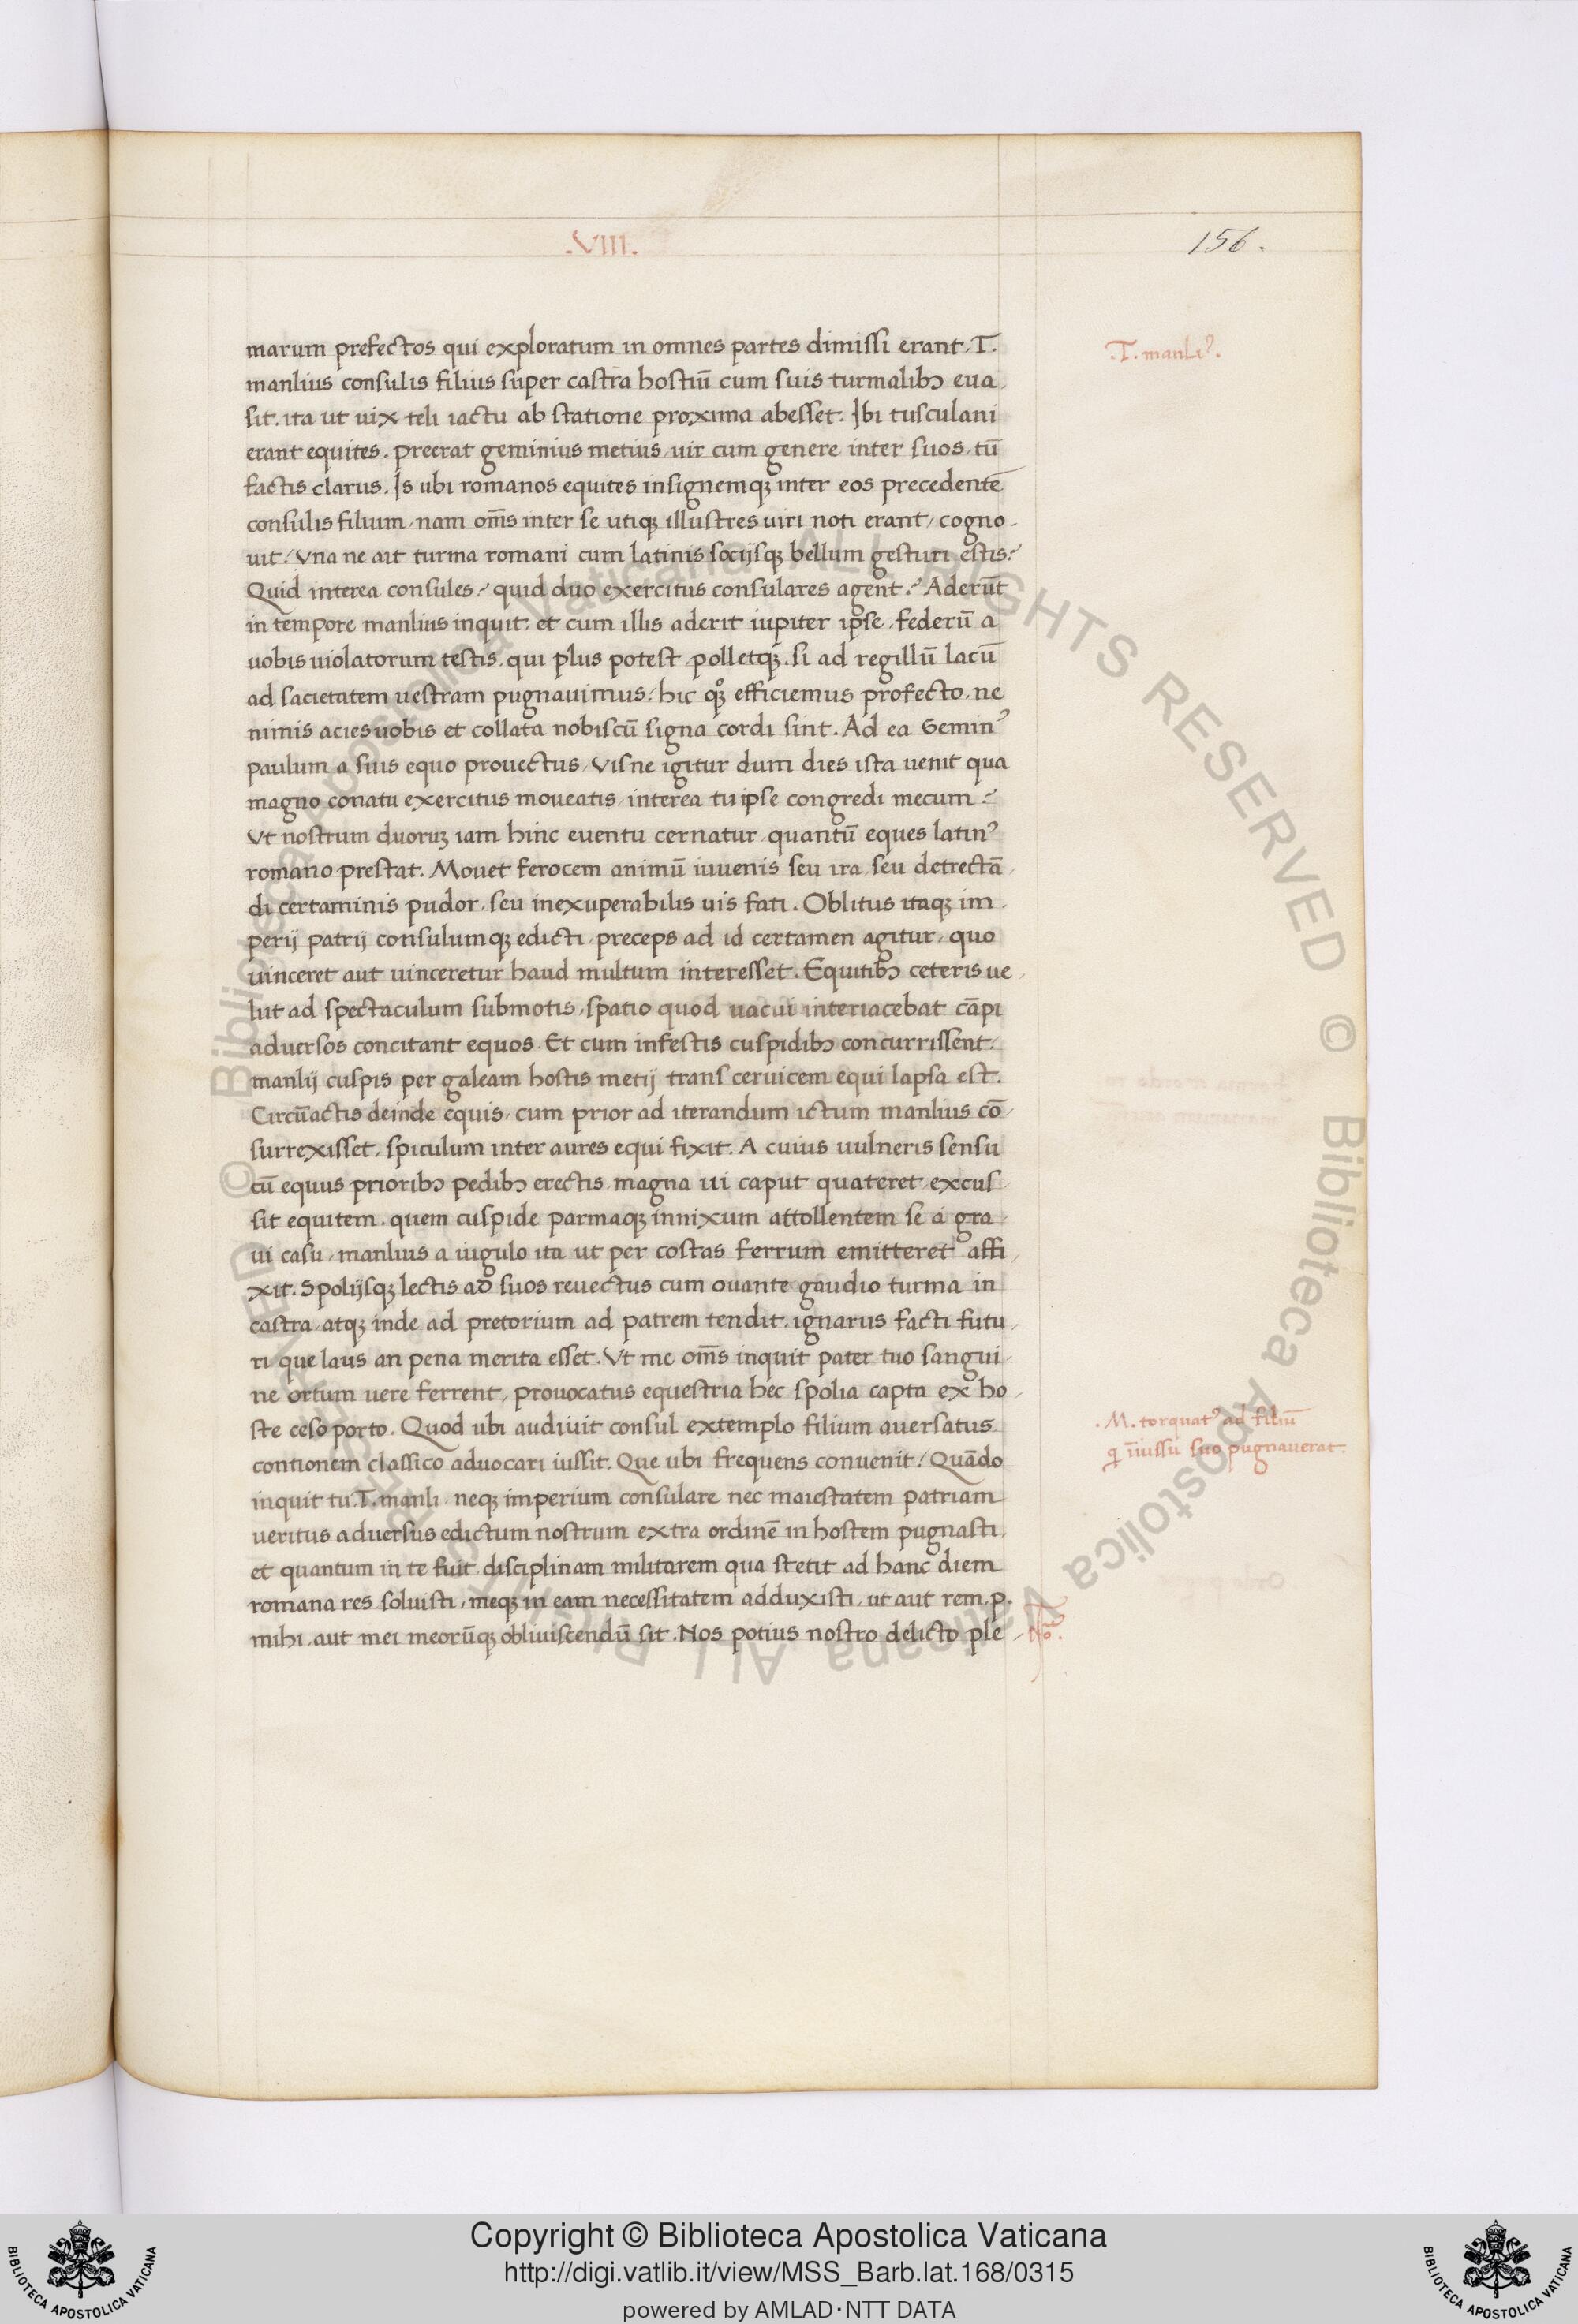 .VIII.
156.
marum prefectos qui exploratum in omnes partes dimissi erant. T.
manlius consulis filius super castra hostiū cum suis turmalibꝫ eua
sit. ita ut uix teli iactu ab statione proxima abesset. Ibi tusculani
erant equites. preerat geminius metius, uir cum genere inter suos, tū
factis clarus. Is ubi romanos equites insignemqꝫ inter eos precedentē
consulis filium, nam om̄s inter se utiqꝫ illustres uiri noti erant, cogno
uit. Vna ne ait turma romani cum latinis socijsqꝫ bellum gesturi estis?
Quid interea consules? quid duo exercitus consulares agent? Aderūt
in tempore manlius inquit, et cum illis aderit iupiter ipse, federū a
uobis uiolatorum testis. qui plus potest, polletqꝫ. si ad regillū lacū
ad sacietatem uestram pugnauimus, hic qꝫ efficiemus profecto, ne
nimis acies uobis et collata nobiscū signa cordi sint. Ad ea Geminꝰ
paulum a suis equo prouectus, Visne igitur dum dies ista uenit qua
magno conatu exercitus moueatis, interea tu ipse congredi mecum?
Vt nostrum duoruꝫ iam hinc euentu cernatur, quantū eques latinꝰ
romano prestat. Mouet ferocem animū iuuenis seu ira, seu detrectā
di certaminis pudor, seu inexuperabilis uis fati. Oblitus itaqꝫ im
perij patrij consulumqꝫ edicti, preceps ad id certamen agitur, quo
uinceret aut uinceretur haud multum interesset. Equitibꝫ ceteris ue
lut ad spectaculum submotis, spatio quod uacui interiacebat cāpi
aduersos concitant equos. Et cum infestis cuspidibꝫ concurrissent,
manlij cuspis per galeam hostis metij trans ceruicem equi lapsa est.
Circūactis deinde equis, cum prior ad iterandum ictum manlius cō
surrexisset, spiculum inter aures equi fixit. A cuius uulneris sensu
cū equus prioribꝫ pedibꝫ erectis, magna ui caput quateret excus
sit equitem. quem cuspide parmaqꝫ innixum attollentem se a gra
ui casu, manlius a iugulo ita ut per costas ferrum emitteret affi
xit. Spolijsqꝫ lectis ad suos reuectus cum ouante gaudio turma in
castra, atqꝫ inde ad pretorium ad patrem tendit. ignarus facti futu
ri que laus an pena merita esset. Vt me om̄s inquit pater tuo sangui
ne ortum uere ferrent, prouocatus equestria hec spolia capta ex ho
ste ceso porto. Quod ubi audiuit consul extemplo filium auersatus
contionem classico aduocari iussit. Que ubi frequens conuenit, Quādo
inquit tu .T. manli, neqꝫ imperium consulare nec maiestatem patriam
ueritus aduersus edictum nostrum extra ordinē in hostem pugnasti,
et quantum in te fuit disciplinam militarem qua stetit ad hanc diem
romana res soluisti, meqꝫ in eam necessitatem adduxisti, ut aut rem .p.
mihi, aut mei meorūqꝫ obliuiscendū sit. Nos potius nostro delicto ple
.T. manliꝰ.
.M. torquatꝰ ad filiū
q īiussu suo pugnauerat.
No.
© Biblioteca Apostolica Vaticana ALL RIGHTS RESERVED © Biblioteca Apostolica Vaticana ALL RIGHTS RESERVED
Copyright © Biblioteca Apostolica Vaticana
http://digi.vatlib.it/view/MSS_Barb.lat.168/0315
powered by AMLAD·NTT DATA
BIBLIOTECA APOSTOLICA VATICANA
BIBLIOTECA APOSTOLICA VATICANA